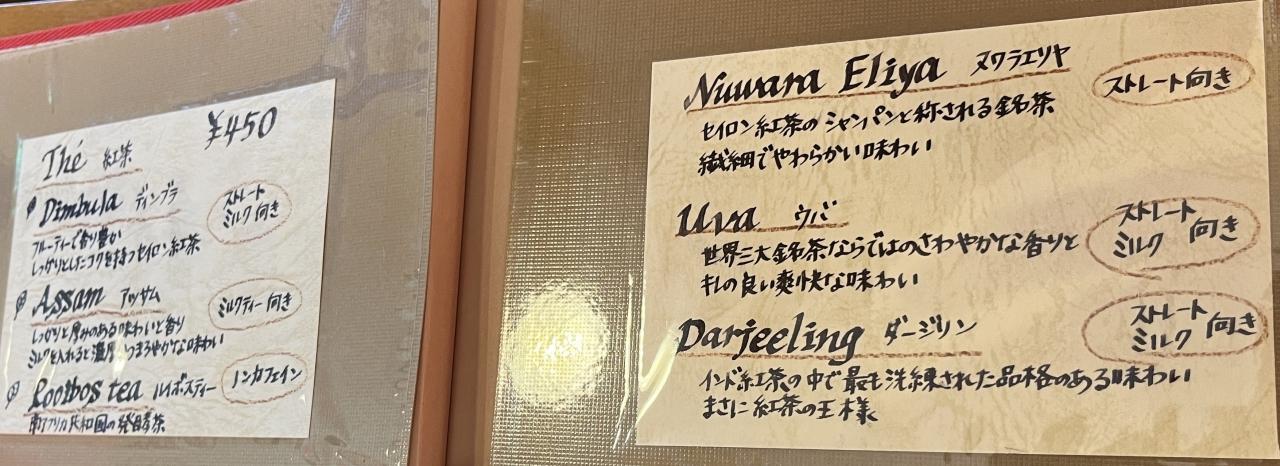 ¥450
Thé 紅茶
Dimbula ディンブラ
ストレート
ミルク 向き
フルーティーで香り豊か
しっかりとしたコクを持つセイロン紅茶
Assam アッサム
ミルクティー向き
しっかりと厚みのある味わいと香り
ミルクを入れると濃厚 つまろやかな味わい
Rooibos tea ルイボスティー
ノンカフェイン
南アフリカ共和国の発酵茶
Nuwara Eliya ヌワラエリヤ
ストレート向き
セイロン紅茶のシャンパンと称される銘茶
繊細でやわらかい味わい
Uva ウバ
ストレート
ミルク 向き
世界三大銘茶ならではのさわやかな香りと
キレの良い爽快な味わい
Darjeeling ダージリン
ストレート
ミルク 向き
インド紅茶の中で最も洗練された品格のある味わい
まさに紅茶の王様